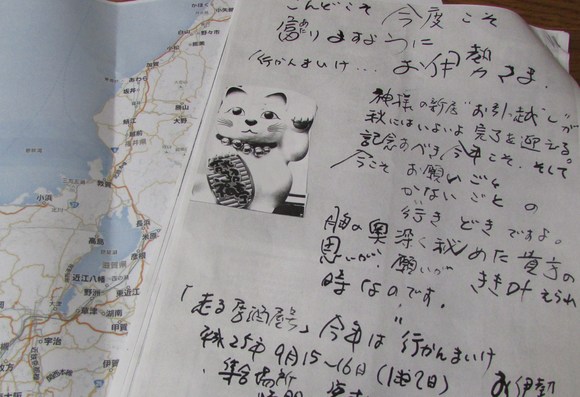 こんどこそ 今度こそ
當りますように
行かんまいけ… お伊勢さま.
神様の新居"お引越し"が
秋にはいよいよ完了を迎える。
記念すべき今年こそ、そして
今こそ お願いごと
かないごと の
行きどきですよ。
胸の奥深く秘めた貴方の
思いが、願いが きき叶えられ
時なのです。
「走る居酒屋号」今年は"行かんまいけ
平成25年9月15~16日(1泊2日) お伊勢
・集合場所
かほく
小矢部
野々市
小松
白山
あわら
坂井
勝山
大野
鯖江
越前
福井県
敦賀
小浜
長浜
米原
高島
彦根
滋賀県
近江八幡
野洲
東近江
草津
湖南
甲賀
宇治
伊賀
枚方